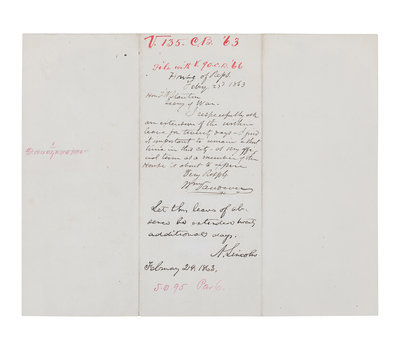 V. 135. C.B. 63
File with V 90. C.B. 66
House of Reps.
Feby 23d 1863
Hon E M Stanton
Secry of War.
I respectfully ask
an extension of the within
leave for twenty days - I find
it important to remain a short
time in this city - as my offi-
cial term as a member of the
House is about to expire
Very Respfly
Wm Vandever
Let this leave of ab-
sence be extended twenty
additional days.
A. Lincoln
February 24. 1863.